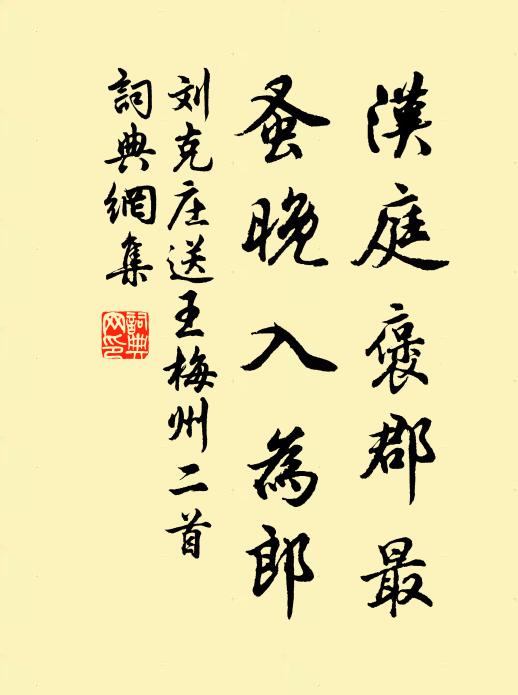 漢庭褒郡最
蚤晚入為郎
刘克庄送王梅州二首
詞典網集
詞典
网印